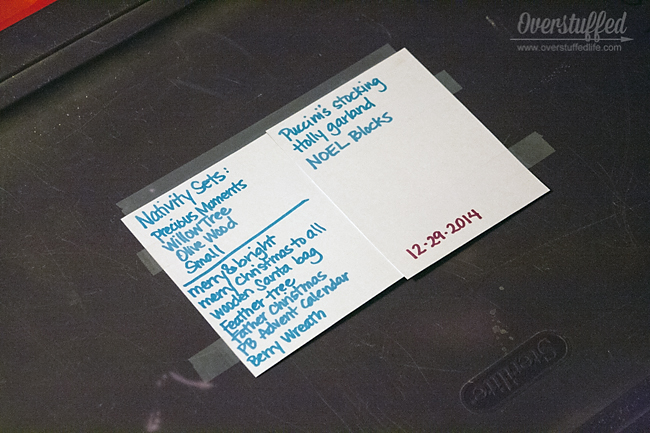 Overstuffed
www.overstuffedlife.com
Nativity Sets:
Precious Moments
Willow Tree
Olive Wood
Small
merry & bright
merry christmas to all
wooden santa bag
Feather tree
Father Christmas
PB Advent Calendar
Berry Wreath
Puccini's stocking
Holly garland
NOEL Blocks
12-29-2014
Sterilite